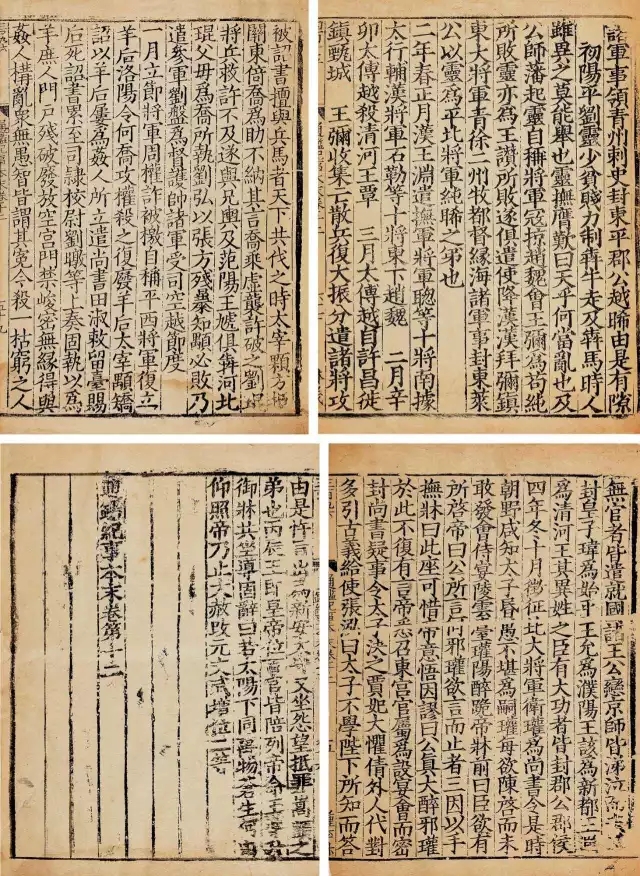 諸軍事領青州刺史封東平郡公越晞由是有隙
初陽平劉靈少貧賤力制犇牛走及犇馬時人
雖異之莫能舉也靈撫膺歎曰天乎何當亂也及
公師藩起靈自稱將軍寇掠趙魏會王彌為苟純
所敗靈亦為王讃所敗遂俱遣使降漢漢拜彌鎮
東大將軍青徐二州牧都督緣海諸軍事封東萊
公以靈為平北將軍純晞之弟也
二年春正月漢王淵遣撫軍將軍聰等十將南據
太行輔漢將軍石勒等十將東下趙魏 二月辛
卯太傅越殺清河王覃 三月太傅越自許昌徙
鎮甄城 王彌收集亡散兵復大振分遣諸將攻
被詔書擅興兵馬者天下共伐之時太宰顒方拒
關東倚喬為助不納其言喬乘虛襲許破之劉琨
將兵救許不及遂與兄輿及范陽王虓俱犇河北
琨父母為喬所執劉弘以張方殘暴知顒必敗乃
遣參軍劉盤為督護帥諸軍受司空越節度
一月立節將軍周權詐被檄自稱平西將軍復立
羊后洛陽令何喬攻權殺之復廢羊后太宰顒矯
詔以羊后屢為姦人所立遣尚書田淑敕留臺賜
后死詔書累至司隸校尉劉暾等上奏固執以為
羊庶人門戶殘破廢放空宮門禁峻密無緣得與
姦人構亂衆無愚智皆謂其冤今殺一枯窮之人
無官者皆遣就國諸王公戀京師皆涕泣而去
封皇子瑋為始平王允為濮陽王該為新都王遐
為清河王其異姓之臣有大功者皆封郡公郡侯
四年冬十月徵征北大將軍衛瓘為尚書令是時
朝野咸知太子昏愚不堪為嗣瓘每欲陳啓而未
敢發會侍宴陵雲臺瓘陽醉跪帝牀前曰臣欲有
所啓帝曰公所言何邪瓘欲言而止者三因以手
撫牀曰此座可惜帝意悟因謬曰公真大醉邪瓘
於此不復有言帝悉召東宮官屬為設宴會而密
封尚書疑事令太子決之賈妃大懼倩外人代對
多引古義給使張泓曰太子不學陛下所知而答
由是忤旨出為新安太守又坐怨望抵罪之
弟也丙辰王即皇帝位百官皆陪列帝命王導升
御牀共坐導固辭曰若太陽下同萬物蒼生何由
仰照帝乃止大赦改元文武增位二等
通鑑紀事本末卷第十二